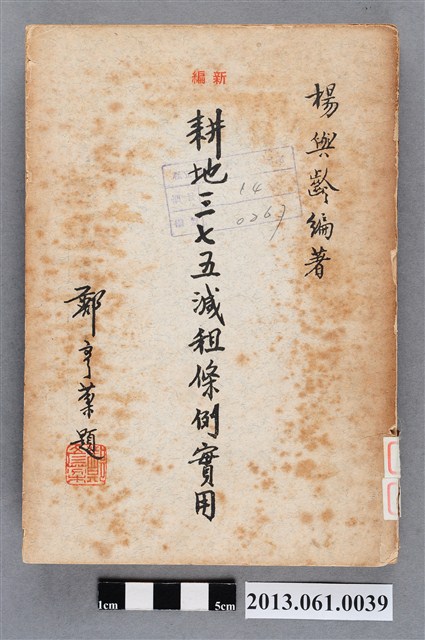 新編
楊與齡編著
耕地三七五減租條例實用
鄭亨業題
14
0267
1cm
5cm
2013.061.0039